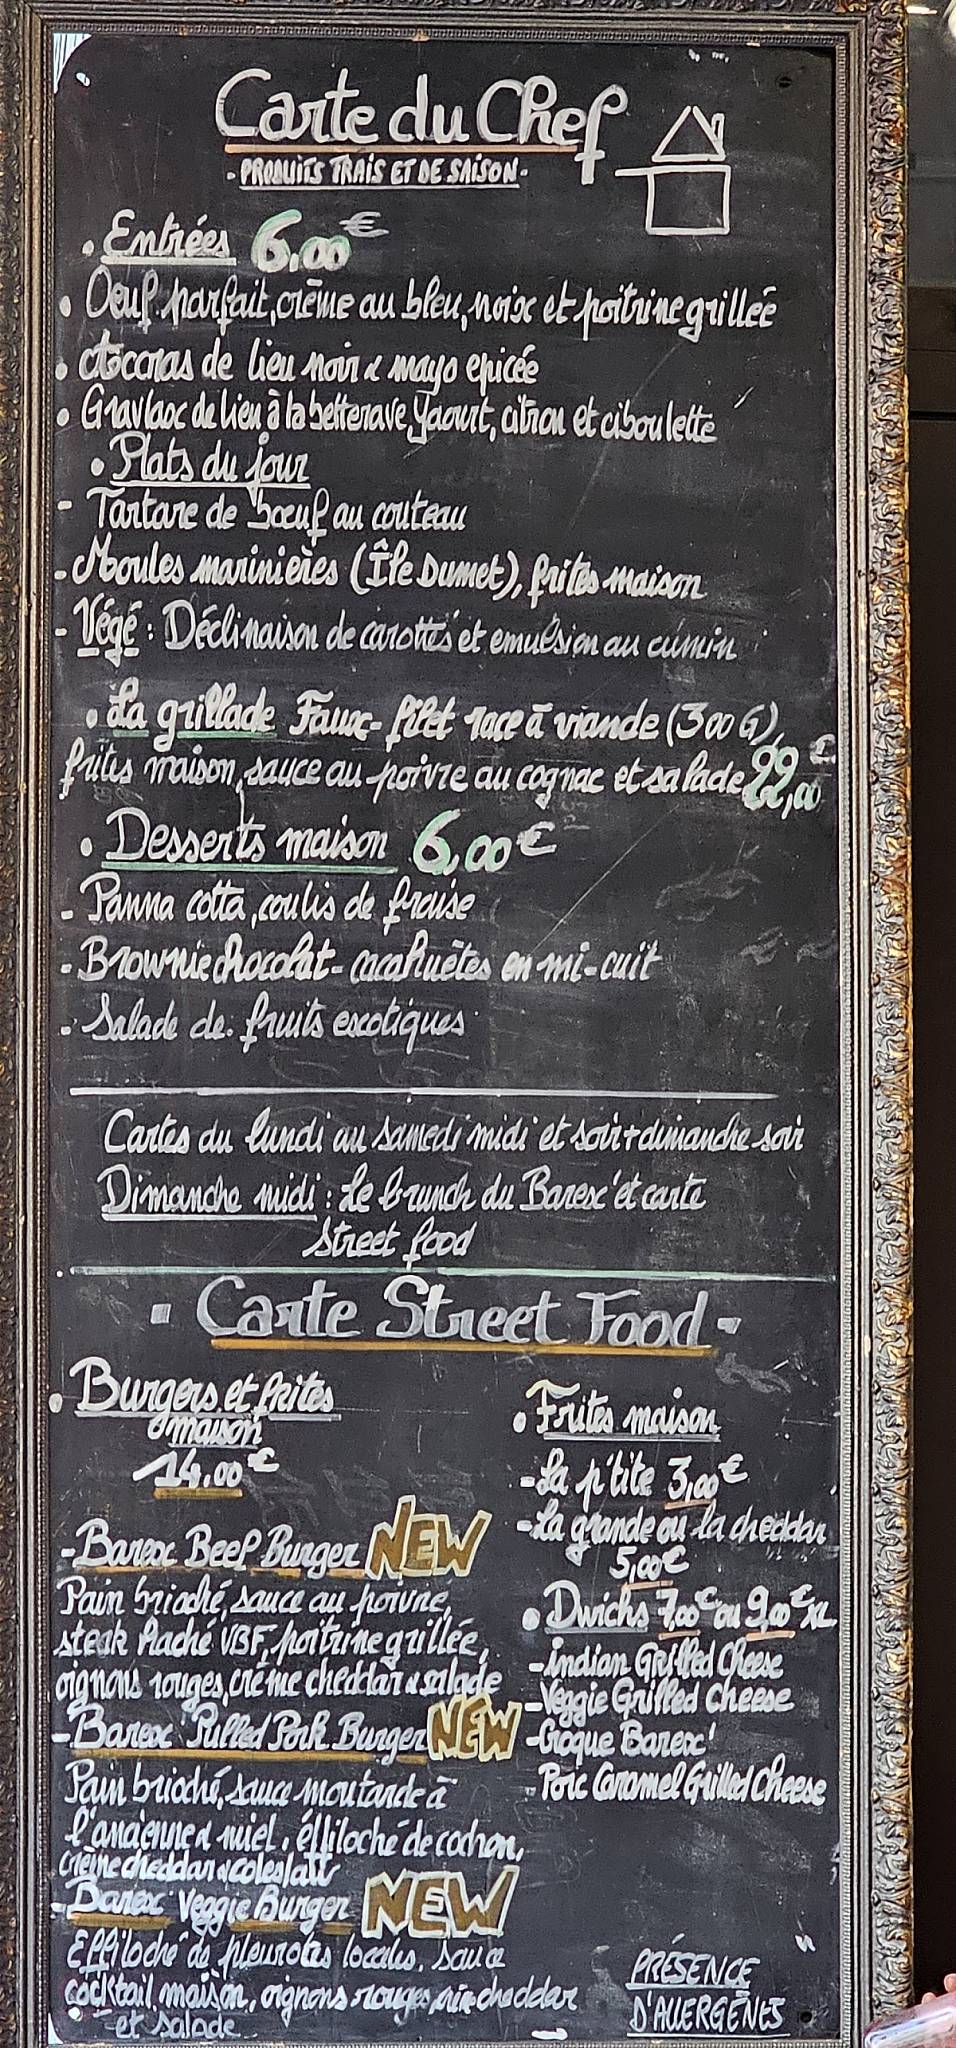 Carte du Chef
- PRODUITS FRAIS ET DE SAISON -
• Entrées 6,00€
• Oeuf parfait, crème au bleu, noix et poitrine grillée
• Accras de lieu noir & mayo epicée
• Gravlax de lieu à la betterave, yaourt, citron et ciboulette
• Plats du jour
- Tartare de bœuf au couteau
- Moules marinières (Île Dumet), frites maison
- Végé : Déclinaison de carottes et emulsion au cumin
• La grillade Faux-filet race à viande (300G),
frites maison, sauce au poivre au cognac et salade 22,00€
• Desserts maison 6,00€
- Panna cotta, coulis de fraise
- Brownie chocolat-cacahuètes en mi-cuit
- Salade de fruits exotiques
Cartes du lundi au samedi midi et soir + dimanche soir
Dimanche midi : Le brunch du Barex' et carte
Street food
- Carte Street Food -
• Burgers et frites
maison
14,00€
- Barex Beef Burger NEW
Pain brioché, sauce au poivre,
steak haché VBF, poitrine grillée,
oignons rouges, crème cheddar & salade
- Barex' Pulled Pork Burger NEW
Pain brioché, sauce moutarde à
l'ancienne & miel, éffiloché de cochon,
crème cheddar & coleslaw
- Barex' Veggie Burger NEW
Effiloché de pleurotes locales, sauce
cocktail maison, oignons rouges, cheddar
et salade
• Frites maison
- La p'tite 3,00€
- La grande ou la cheddar
5,00€
• Dwichs 7,00€ ou 9,00€ XL
- Indian Grilled Cheese
- Veggie Grilled Cheese
- Croque Barex'
- Porc Caramel Grilled Cheese
PRÉSENCE
D'ALLERGÈNES